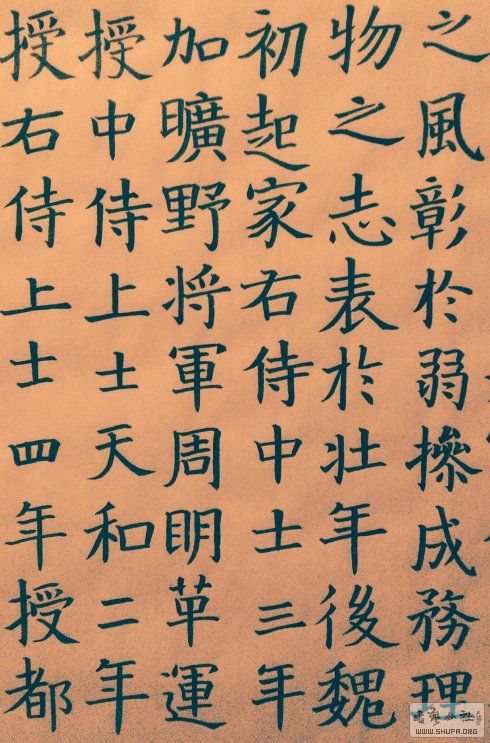 之風彰於弱操成務理
物之志表於壯年後魏
初起家右侍中士三年
加曠野將軍周明革運
授中侍上士天和二年
授右侍上士四年授都
WWW.SHUFA.ORG